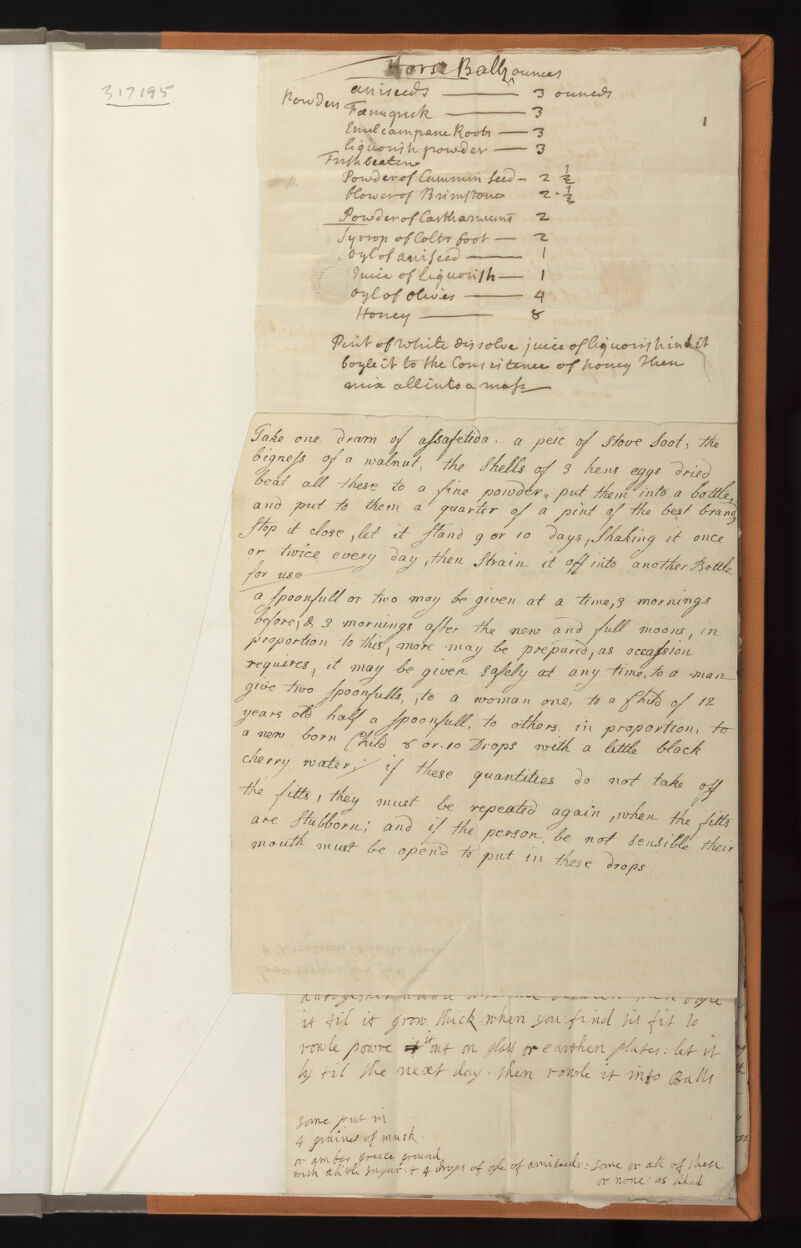 317195
1
Horse Balls ounces
Powders aniseeds — 3 ounces
Fænugreek — 3
Enulcampane Roots — 3
liquorish powder — 3
Fresh beaten
Powder of Cummin Seed — 2 ½
flower of Brimstone 2 · ½
Powder of Carthamums 2
Syrrop of Colts foot — 2
oyl of aniseed — 1
Juice of liquorish — 1
oyl of olives — 4
Honey — 8
Pint of white dissolve juice of liquorish in it
boyle it to the Consistence of honey then
mix all into a mass
Take one dram of assafetida. a peic of stove soot, the
bigness of a walnut, the Shells of 3 hens eggs dried
beat all these to a fine powder, put them into a bottle,
and put to them a quarter of a pint of the best brandy
stop it close, let it stand 9 or 10 days, shaking it once
or twice every day, then strain it off into another Bottle
for use
a spoonfull or two may be given at a time, 3 mornings
before, & 3 mornings after the new and full moons, in
proportion to this, more may be prepared, as occassion
requires, it may be given safely at any time, to a man
give two spoonfulls, to a woman one, to a Child of 12
years old half a spoonfull, to others in proportion, to
a new born Child 8 or 10 Drops with a little black
cherry water; if these quantities do not take off
the fitts, they must be repeated again, when the fitts
are stubborn; and if the person be not sensible their
mouth must be open'd to put in these drops
it til it grow thick when you find tis fit to
rowle powre it out on glass or earthen plates: let it
ly til the next day. then rowle it into Balls
some put in
4 graines of musk.
or amber greece ground
with a little sugar & 4 drops of oyle of anniseeds: some or all of these
or none: as liked